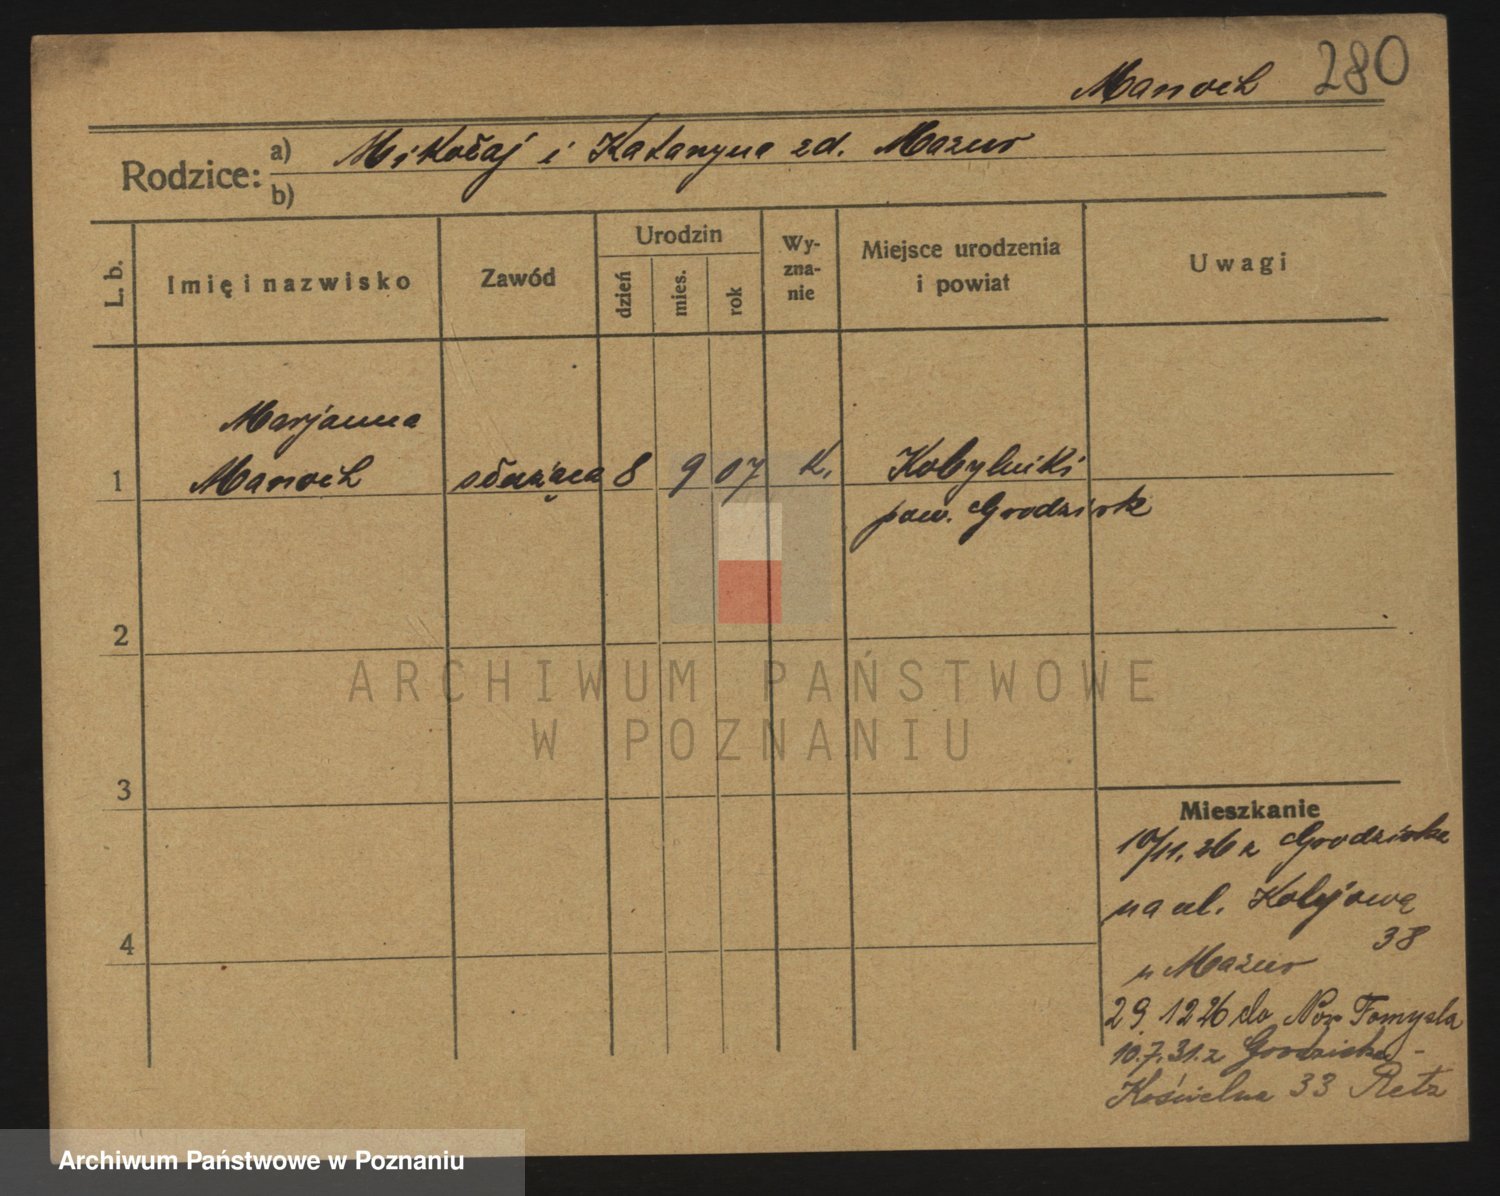 Manoch 280
Rodzice: a) Mikołaj i Katarzyna zd. Mazur
b)
L. b. Imię i nazwisko Zawód Urodzin dzień mies. rok Wy-zna-nie Miejsce urodzenia i powiat Uwagi
Marjanna
1 Manoch służąca 8 9 07 K. Kobylniki
pow. Grodzisk
2
ARCHIWUM PAŃSTWOWE
W POZNANIU
3
Mieszkanie
10/11. 26 z Grodziska
na ul. Kolejową
38
4
u Mazur
29 12 26 do Now Tomysla
10.7.31. z Grodziska -
Kościelna 33 Retz
Archiwum Państwowe w Poznaniu